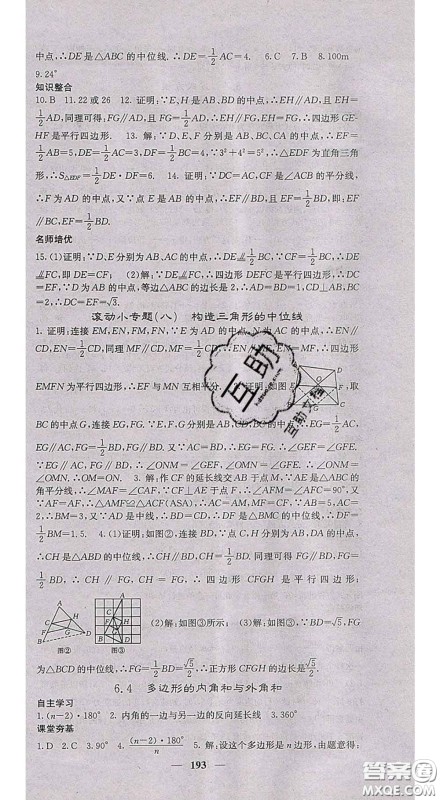 中点,∴DE是△ABC的中位线.∴DE=1/2AC=4. 6.C 7.B 8.100m
9.24°
知识整合
10.B 11.22或26 12.证明:∵E、H是AB、AD的中点,∴EH∥AD,且EH=
1/2AD,同理可得:FG∥AD,且FG=1/2AD,∴EH∥FG,EH=FG,∴四边形GE-
HF是平行四边形. 13.解:∵D、E、F分别是AB、BC、CA的中点,∴EF=
1/2AB=5,DE=1/2AC=3,DF=1/2BC=4.∵3²+4²=5²,∴△EDF为直角三角
形,∴S△EDF=1/2DE·DF=6. 14.证明:∵DC=AC,CE是∠ACB的平分线,
∴F为AD的中点,又∵点E是AB的中点,∴EF∥BD,且EF=1/2BD,即:EF∥
BC,EF=1/2BD.
名师培优
15.(1)证明:∵D、E分别为AB、AC的中点,∴DE⫽1/2BC,∵CF=1/2BC,∴
DE⫽FC,即DE=CF; (2)解:∵DE⫽FC,∴四边形DEFC是平行四边形,
∴DC=EF,∵D为AB的中点,等边△ABC的边长是2,∴AD=BD=1,CD⊥AB,
BC=2,∴DC=EF=√3.
滚动小专题(八) 构造三角形的中位线
1.证明:连接EM,EN,FM,FN,∵E为AD的中点,N为AC的中点,∴EN∥
CD,EN=1/2CD,同理MF∥CD,MF=1/2CD,∴EN∥MF,EN=MF,∴四边形
EMFN为平行四边形,∴EF与MN互相平分. 2.证明:如图
,取
BC的中点G,连接EG、FG,∵E、F、G分别为AB、CD、BC的中点,∴EG=1/2
AC,EG∥AC,FG=1/2BD,FG∥BD.又∵AC=BD,∴EG=FG,∴∠GEF=
∠GFE.∵EG∥AC,FG∥BD,∴∠ONM=∠GEF,∠OMN=∠GFE,∴
∠ONM=∠OMN,∴OM=ON. 3.解:作CF的延长线交AB于点M.∵AE是∠BAC的
角平分线,∴∠MAF=∠CAF.∵CF⊥AE于点F,∴∠AFM=∠AFC=90°,又
∵AF=AF,∴△AMF≌△ACF(ASA),∴CF=FM,AM=AC=2.∵AB=5,AC
=2,∴BM=3.又∵D是BC中点,∴BD=CD,∴DF是△CBM的中位线,∴DF=
1/2BM=1.5. 4.(1)证明:如图②,连接BD,∵点C、H分别为AB、DA的中点,
∴CH是△ABD的中位线.∴CH∥BD,CH=1/2BD.同理可得FG∥BD,FG=
1/2BD, ∴ CH ∥ FG, CH = FG. ∴ 四边形 CFGH 是平行四边形;
(2)解:如图③所示; (3)解:如图③,∵BD=√5,∴FG
图② 图③
为△BCD的中位线,∴FG=1/2BD=√5/2,∴正方形CFGH的边长是√5/2.
6.4 多边形的内角和与外角和
自主学习
1.(n-2)·180° 2.内角的一边与另一边的反向延长线 3.360°
课堂夯基
1.D 2.C 3.90° 4.(n-2)·180°/n 5.解:设这个多边形是n边形,由题意得:
193
互助
互助文档
答案圈
MXQE.COM